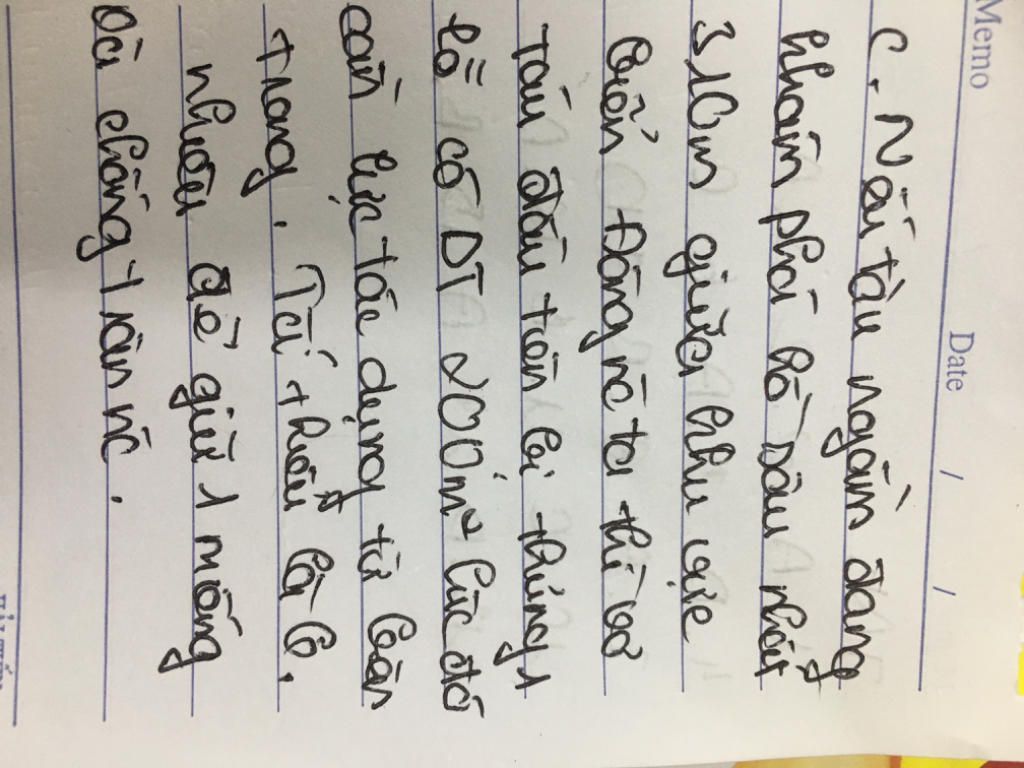 Memo
Date / /
C. Nếu tàu ngầm đang
khám phá hố sâu nhất
310m giữa khu vực
biển Đông nc ta thì vỏ
tàu đâu tàn bị thủng 1
lỗ có DT 200m² lúc đó
cần lực tác dụng từ bên
trong. Tối thiểu là b,
nhiêu để giữ 1 miếng
vá chống tràn nc.